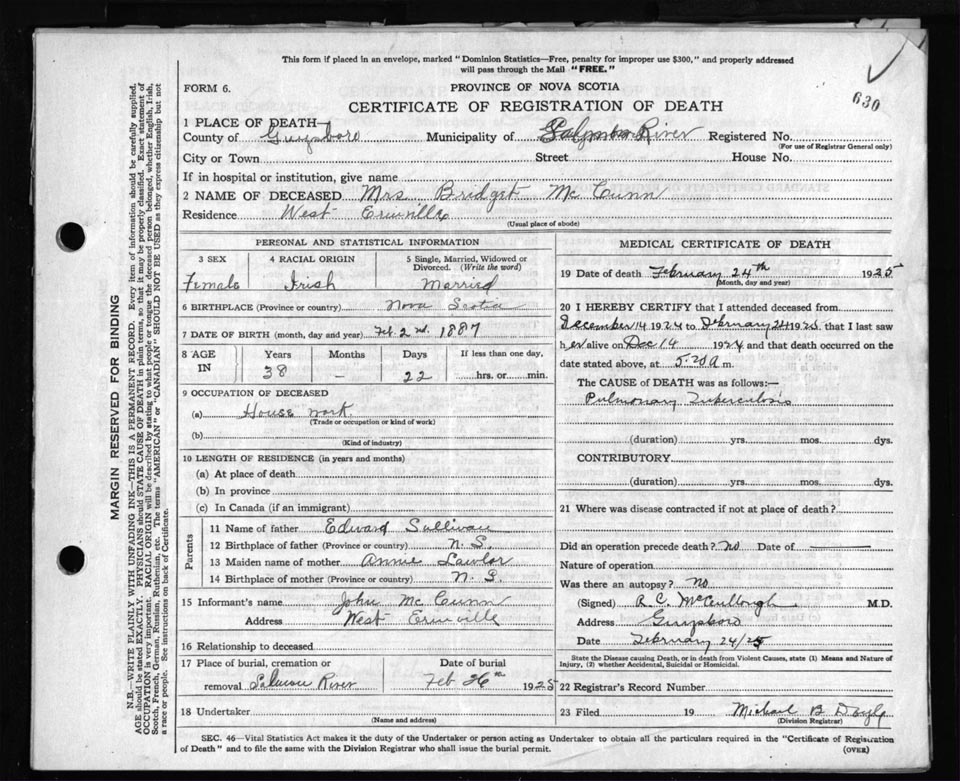 This form if placed in an envelope, marked "Dominion Statistics—Free, penalty for improper use $300," and properly addressed
will pass through the Mail "FREE."
630
FORM 6.
PROVINCE OF NOVA SCOTIA
CERTIFICATE OF REGISTRATION OF DEATH
1 PLACE OF DEATH—
County of Guysboro Municipality of River Registered No.
(For use of Registrar General only)
City or Town Street House No.
If in hospital or institution, give name
2 NAME OF DECEASED Mrs Bridget Mc Cunn
Residence West Erinville
(Usual place of abode)
PERSONAL AND STATISTICAL INFORMATION
3 SEX 4 RACIAL ORIGIN 5 Single, Married, Widowed or
Divorced. (Write the word)
Female Irish Married
6 BIRTHPLACE (Province or country) Nova Scotia
7 DATE OF BIRTH (month, day and year) Feb 2nd. 1887
8 AGE IN Years Months Days If less than one day,
38 – 22 hrs. or min.
9 OCCUPATION OF DECEASED
(a) House work.
(Trade or occupation or kind of work)
(b)
(Kind of industry)
10 LENGTH OF RESIDENCE (in years and months)
(a) At place of death
(b) In province
(c) In Canada (if an immigrant)
Parents
11 Name of father Edward Sullivan
12 Birthplace of father (Province or country) N. S.
13 Maiden name of mother Annie Lawlor
14 Birthplace of mother (Province or country) N. S.
15 Informant's name John Mc Cunn
Address West Erinville
16 Relationship to deceased
17 Place of burial, cremation or Date of burial
removal Salmon River Feb 26th 1925
18 Undertaker
(Name and address)
MEDICAL CERTIFICATE OF DEATH
19 Date of death February 24th 1925
(Month, day and year)
20 I HEREBY CERTIFY that I attended deceased from
December 14 1924 to February 24 1925 that I last saw
her alive on Dec 14 1924 and that death occurred on the
date stated above, at 5.20 a m.
The CAUSE of DEATH was as follows:—
Pulmonary Tuberculosis
(duration) yrs. mos. dys.
CONTRIBUTORY.
(duration) yrs. mos. dys.
21 Where was disease contracted if not at place of death?
Did an operation precede death? no Date of
Nature of operation
Was there an autopsy? no
(Signed) R. C. McCullough M.D.
Address Guysboro
Date February 24/25
State the Disease causing Death, or in death from Violent Causes, state (1) Means and Nature of
Injury, (2) whether Accidental, Suicidal or Homicidal.
22 Registrar's Record Number
23 Filed 19 Michael B Doyle
(Division Registrar)
SEC. 46—Vital Statistics Act makes it the duty of the Undertaker or person acting as Undertaker to obtain all the particulars required in the "Certificate of Registration
of Death" and to file the same with the Division Registrar who shall issue the burial permit.
(OVER)
MARGIN RESERVED FOR BINDING
N.B.—WRITE PLAINLY WITH UNFADING INK—THIS IS A PERMANENT RECORD. Every item of information should be carefully supplied.
AGE should be stated EXACTLY. PHYSICIANS should STATE CAUSE OF DEATH in plain terms, so that it may be properly classified. Exact statement of
OCCUPATION is very important. RACIAL ORIGIN will be described by stating to what people or tongue the deceased person belonged, whether English, Irish,
Scotch, French, German, Russian, Ruthenian, etc. The terms "AMERICAN" or "CANADIAN" SHOULD NOT BE USED as they express citizenship but not
a race or people. See instructions on back of Certificate.